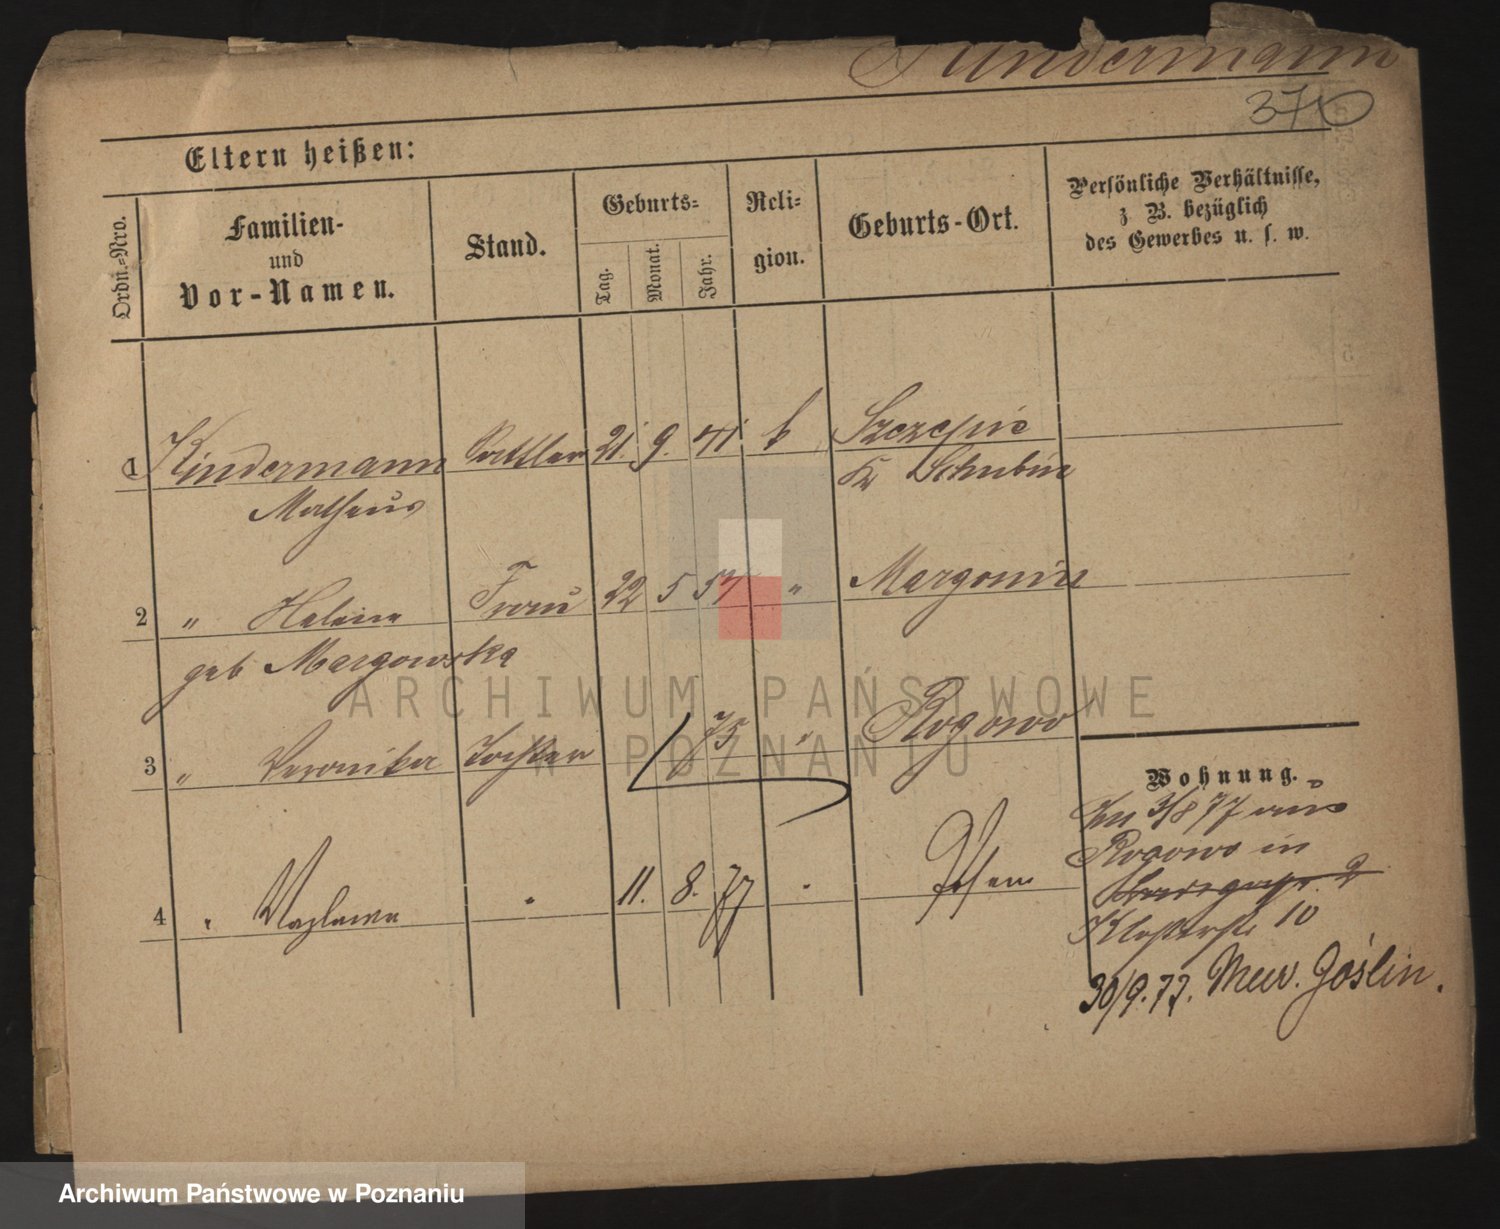 Kindermann
370
Eltern heißen:
Ordn.-Nro.
Familien-
und
Vor-Namen.
Stand.
Geburts-
Tag.
Monat.
Jahr.
Reli-
gion.
Geburts-Ort.
Persönliche Verhältnisse,
z B. bezüglich
des Gewerbes u. s. w.
1 Kindermann Sattler 21. 9. k Szczepic
Matheus Kr Schubin
2 " Helene Frau 22 5 " Margonin
geb Margowska
3 " Veronika Tochter 75 " Rogowo
4 " 11. 8. 77 " Posen
Wohnung.
3/8 77 aus
Rogowo in
2
Klosterstr 10
30/9.77. Goślin.
ARCHIWUM PAŃSTWOWE
W POZNANIU
Archiwum Państwowe w Poznaniu